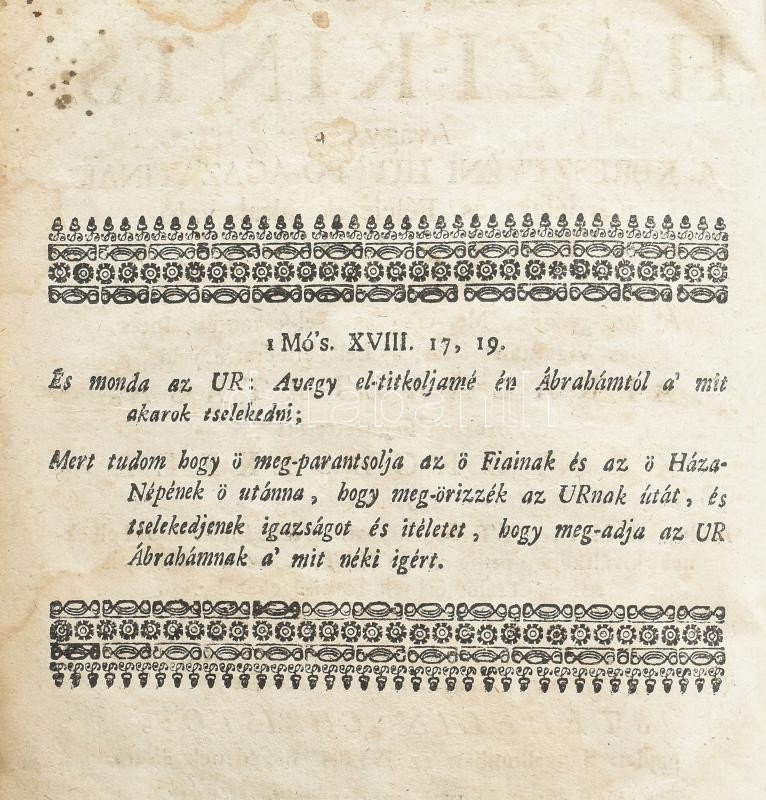 1 Mó's. XVIII. 17, 19.
És monda az UR: Avagy el-titkoljamé én Ábrahámtól a' mit
akarok tselekedni;
Mert tudom hogy ö meg-parantsolja az ö Fiainak és az ö Háza-
Népének ö utánna, hogy meg-örizzék az URnak útát, és
tselekedjenek igazságot és itéletet, hogy meg-adja az UR
Ábrahámnak a' mit néki igért.